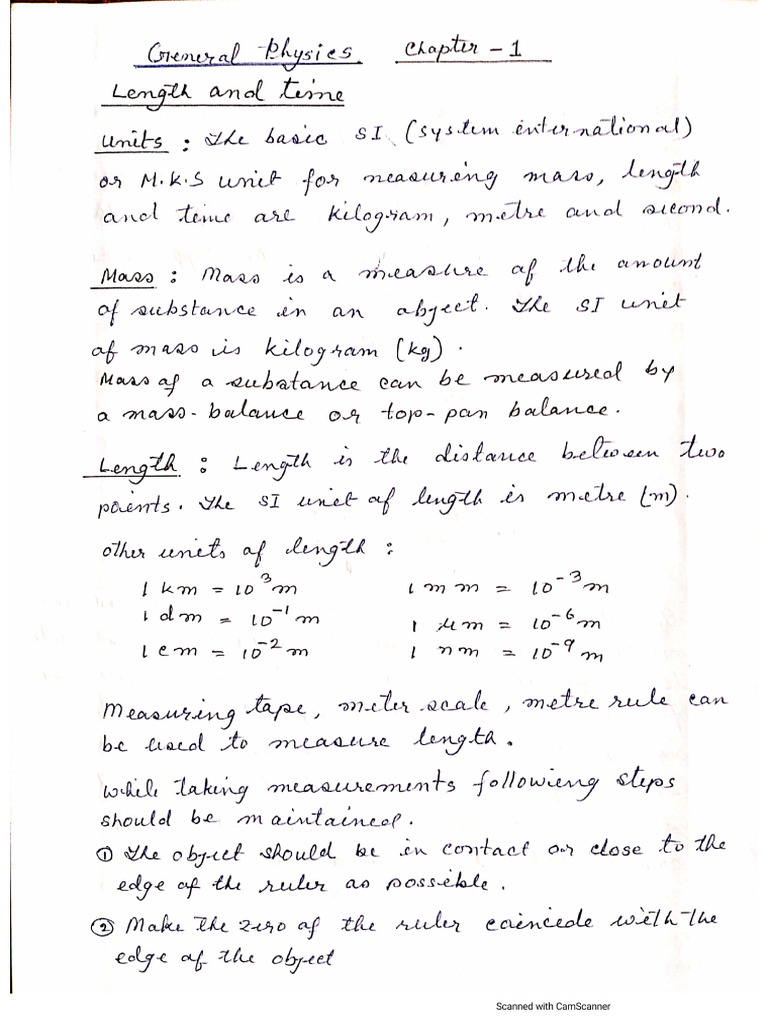 General Physics Chapter - 1
Length and time
Units : The basic SI (system international)
or M.K.S unit for measuring mass, length
and time are kilogram, metre and second.
Mass : Mass is a measure of the amount
of substance in an object. The SI unit
of mass is kilogram (kg).
Mass of a substance can be measured by
a mass-balance or top-pan balance.
Length : Length is the distance between two
points. The SI unit of length is metre (m).
other units of length :
1 km = 10³ m 1 mm = 10⁻³ m
1 dm = 10⁻¹ m 1 μm = 10⁻⁶ m
1 cm = 10⁻² m 1 nm = 10⁻⁹ m
Measuring tape, meter scale, metre rule can
be used to measure length.
while taking measurements following steps
should be maintained.
① The object should be in contact or close to the
edge of the ruler as possible.
② Make the zero of the ruler coincide with the
edge of the object
Scanned with CamScanner